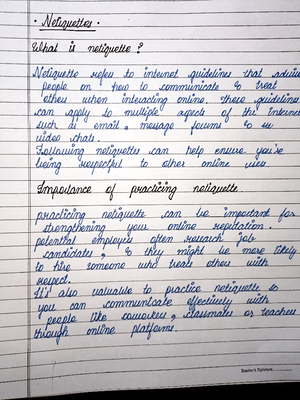 • Netiquettes •
What is netiquette ?
Netiquette refers to internet guidelines that advise
people on how to communicate & treat
others when interacting online. These guidelines
can apply to multiple aspects of the internet
such as email, message forums &
video chats.
Following netiquette can help ensure you're
being respectful to other online users
Importance of practicing netiquette.
practicing netiquette can be important for
strengthening your online reputation.
potential employers often research job
candidates, & they might be more likely
to hire someone who treats others with
respect.
It's also valuable to practice netiquette so
you can communicate effectively with
people like coworkers, classmates or teachers
through online platforms.
Teacher's Signature